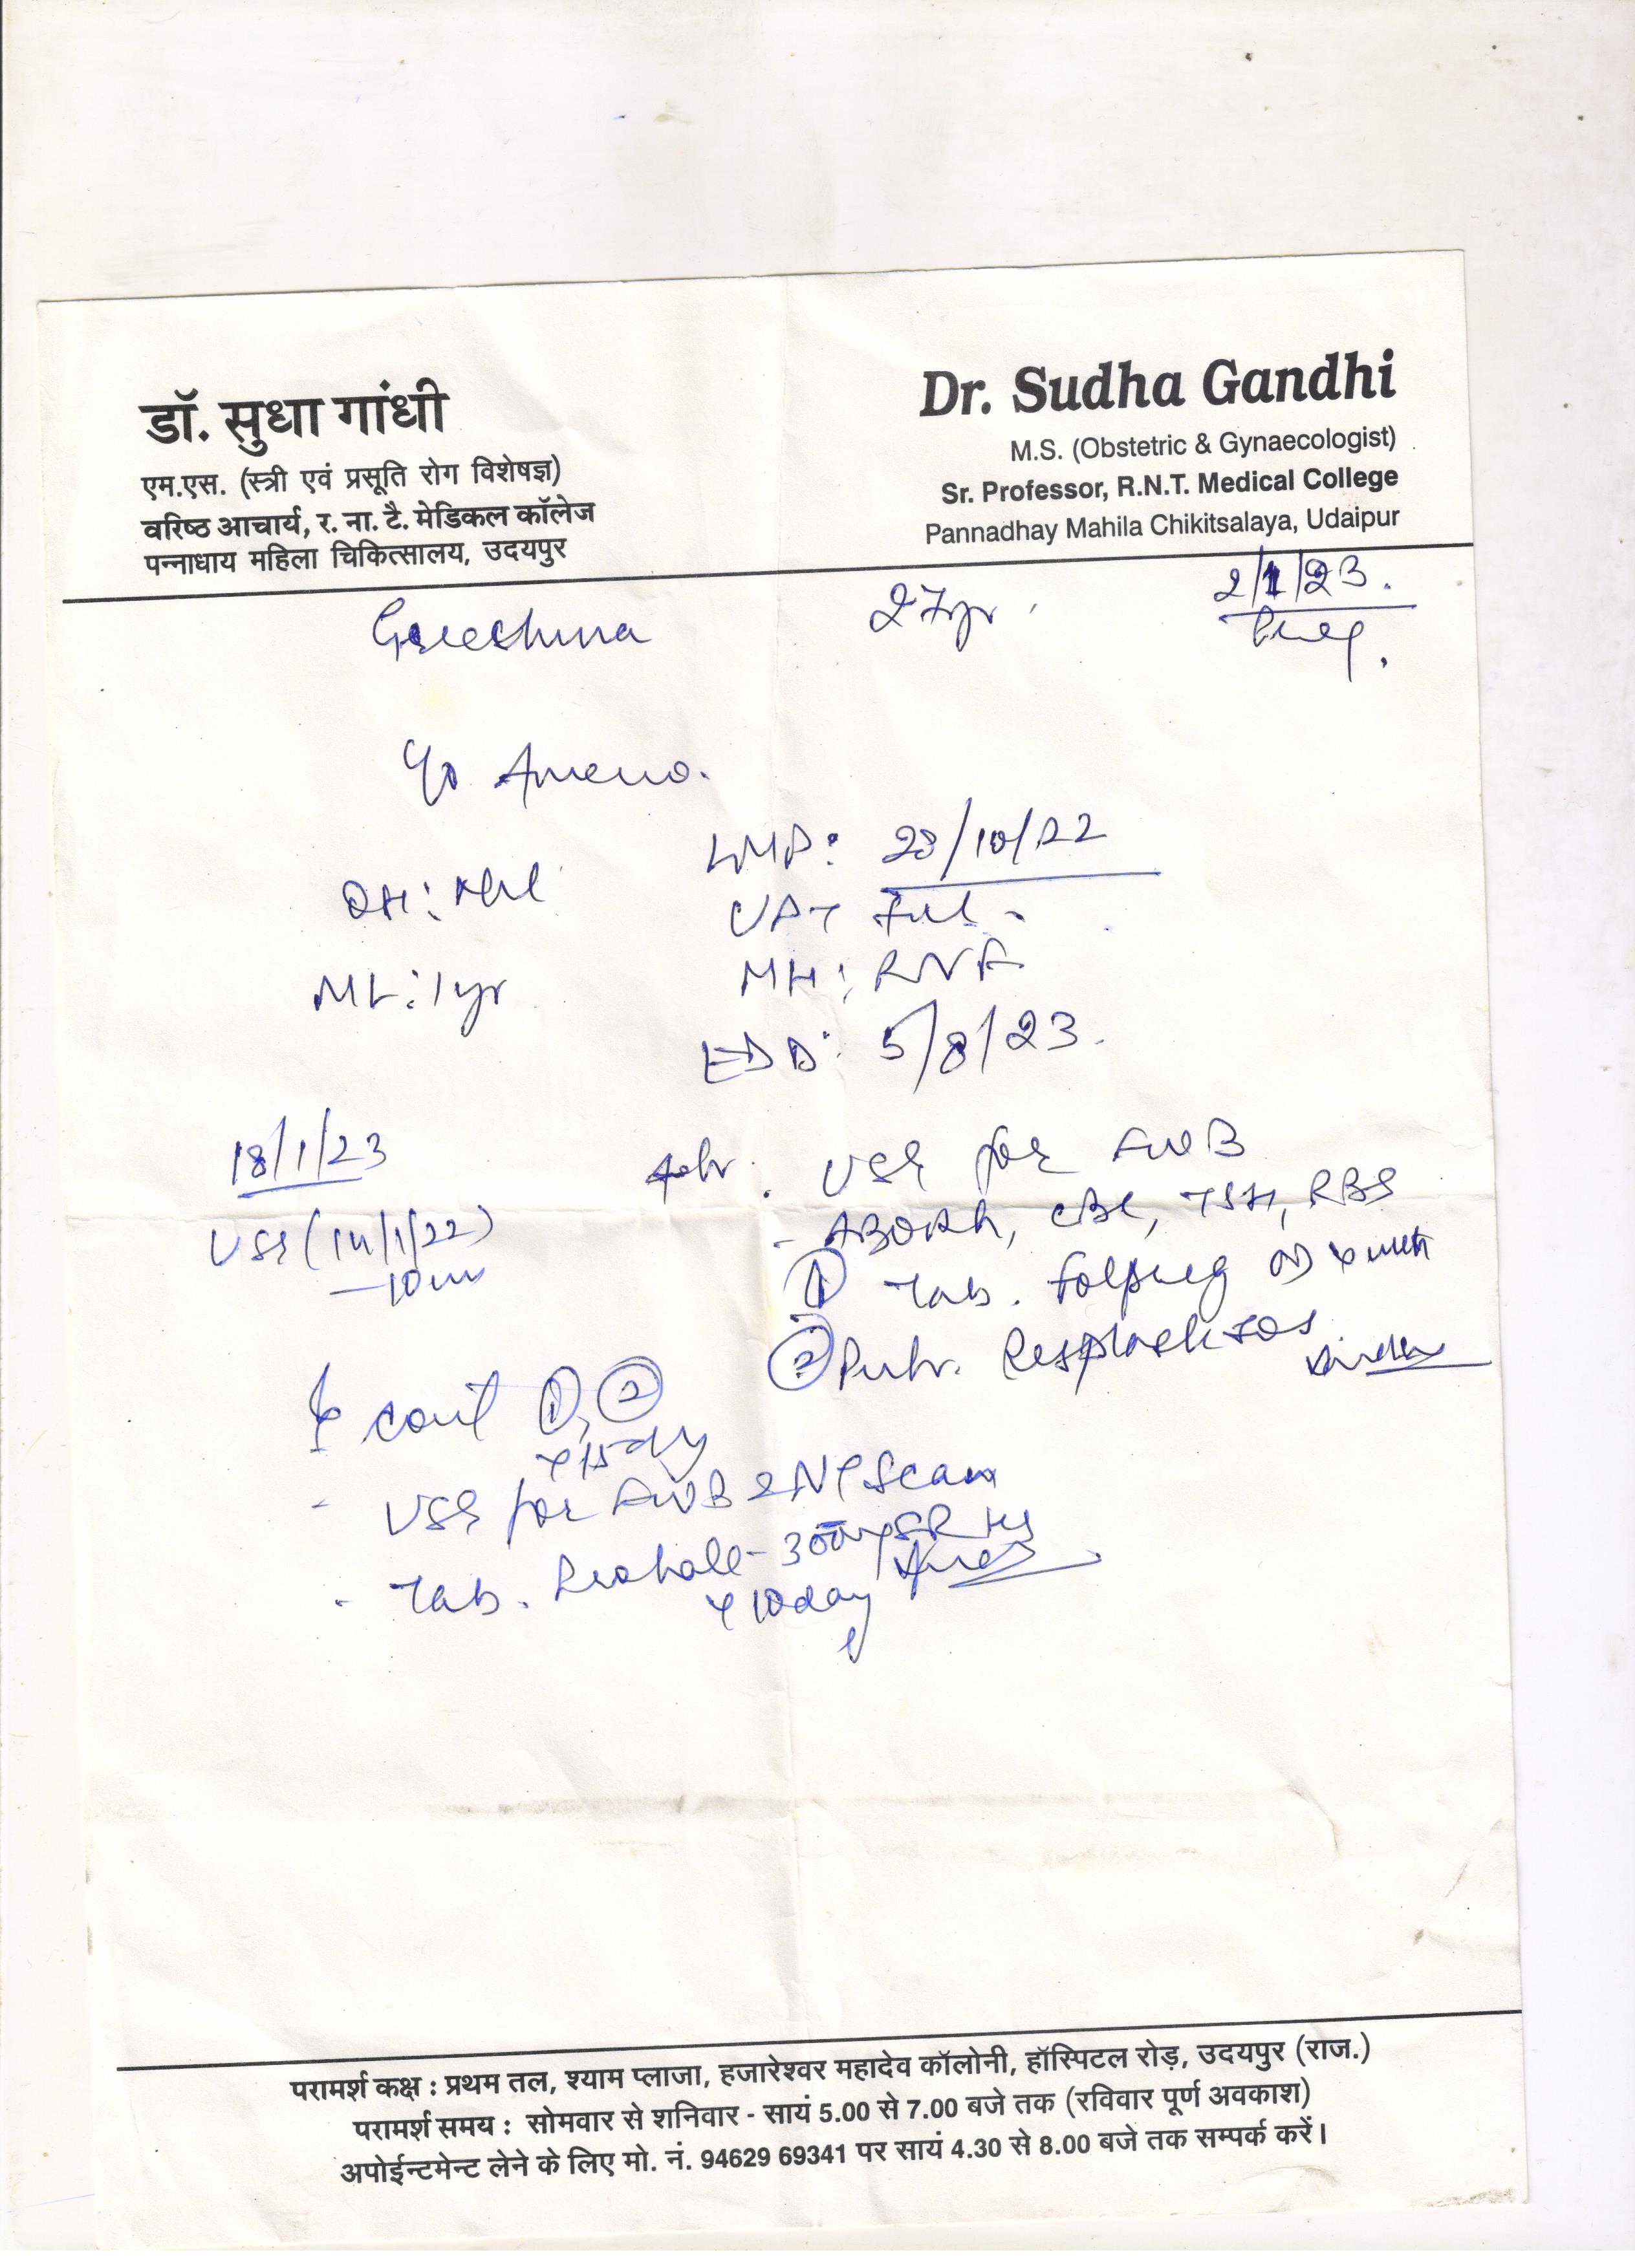 डॉ. सुधा गांधी
एम.एस. (स्त्री एवं प्रसूति रोग विशेषज्ञ)
वरिष्ठ आचार्य, र. ना. टै. मेडिकल कॉलेज
पन्नाधाय महिला चिकित्सालय, उदयपुर
Dr. Sudha Gandhi
M.S. (Obstetric & Gynaecologist)
Sr. Professor, R.N.T. Medical College
Pannadhay Mahila Chikitsalaya, Udaipur
27yr
2/1/23.
LMP: 28/10/22
OH: Nil
UPT
ML: 1yr
MH:
EDD: 5/8/23.
18/1/23
USG for FWB
USG (14/1/22)
- ABORh, CBC, TSH, RBS
① Tab. Folpreg OD x
②
cont ①, ②
x 15 day
- USG for FWB & NT Scan
- Tab. 300 SR HS
x 10 day
परामर्श कक्ष : प्रथम तल, श्याम प्लाजा, हजारेश्वर महादेव कॉलोनी, हॉस्पिटल रोड़, उदयपुर (राज.)
परामर्श समय : सोमवार से शनिवार - सायं 5.00 से 7.00 बजे तक (रविवार पूर्ण अवकाश)
अपोईन्टमेन्ट लेने के लिए मो. नं. 94629 69341 पर सायं 4.30 से 8.00 बजे तक सम्पर्क करें।